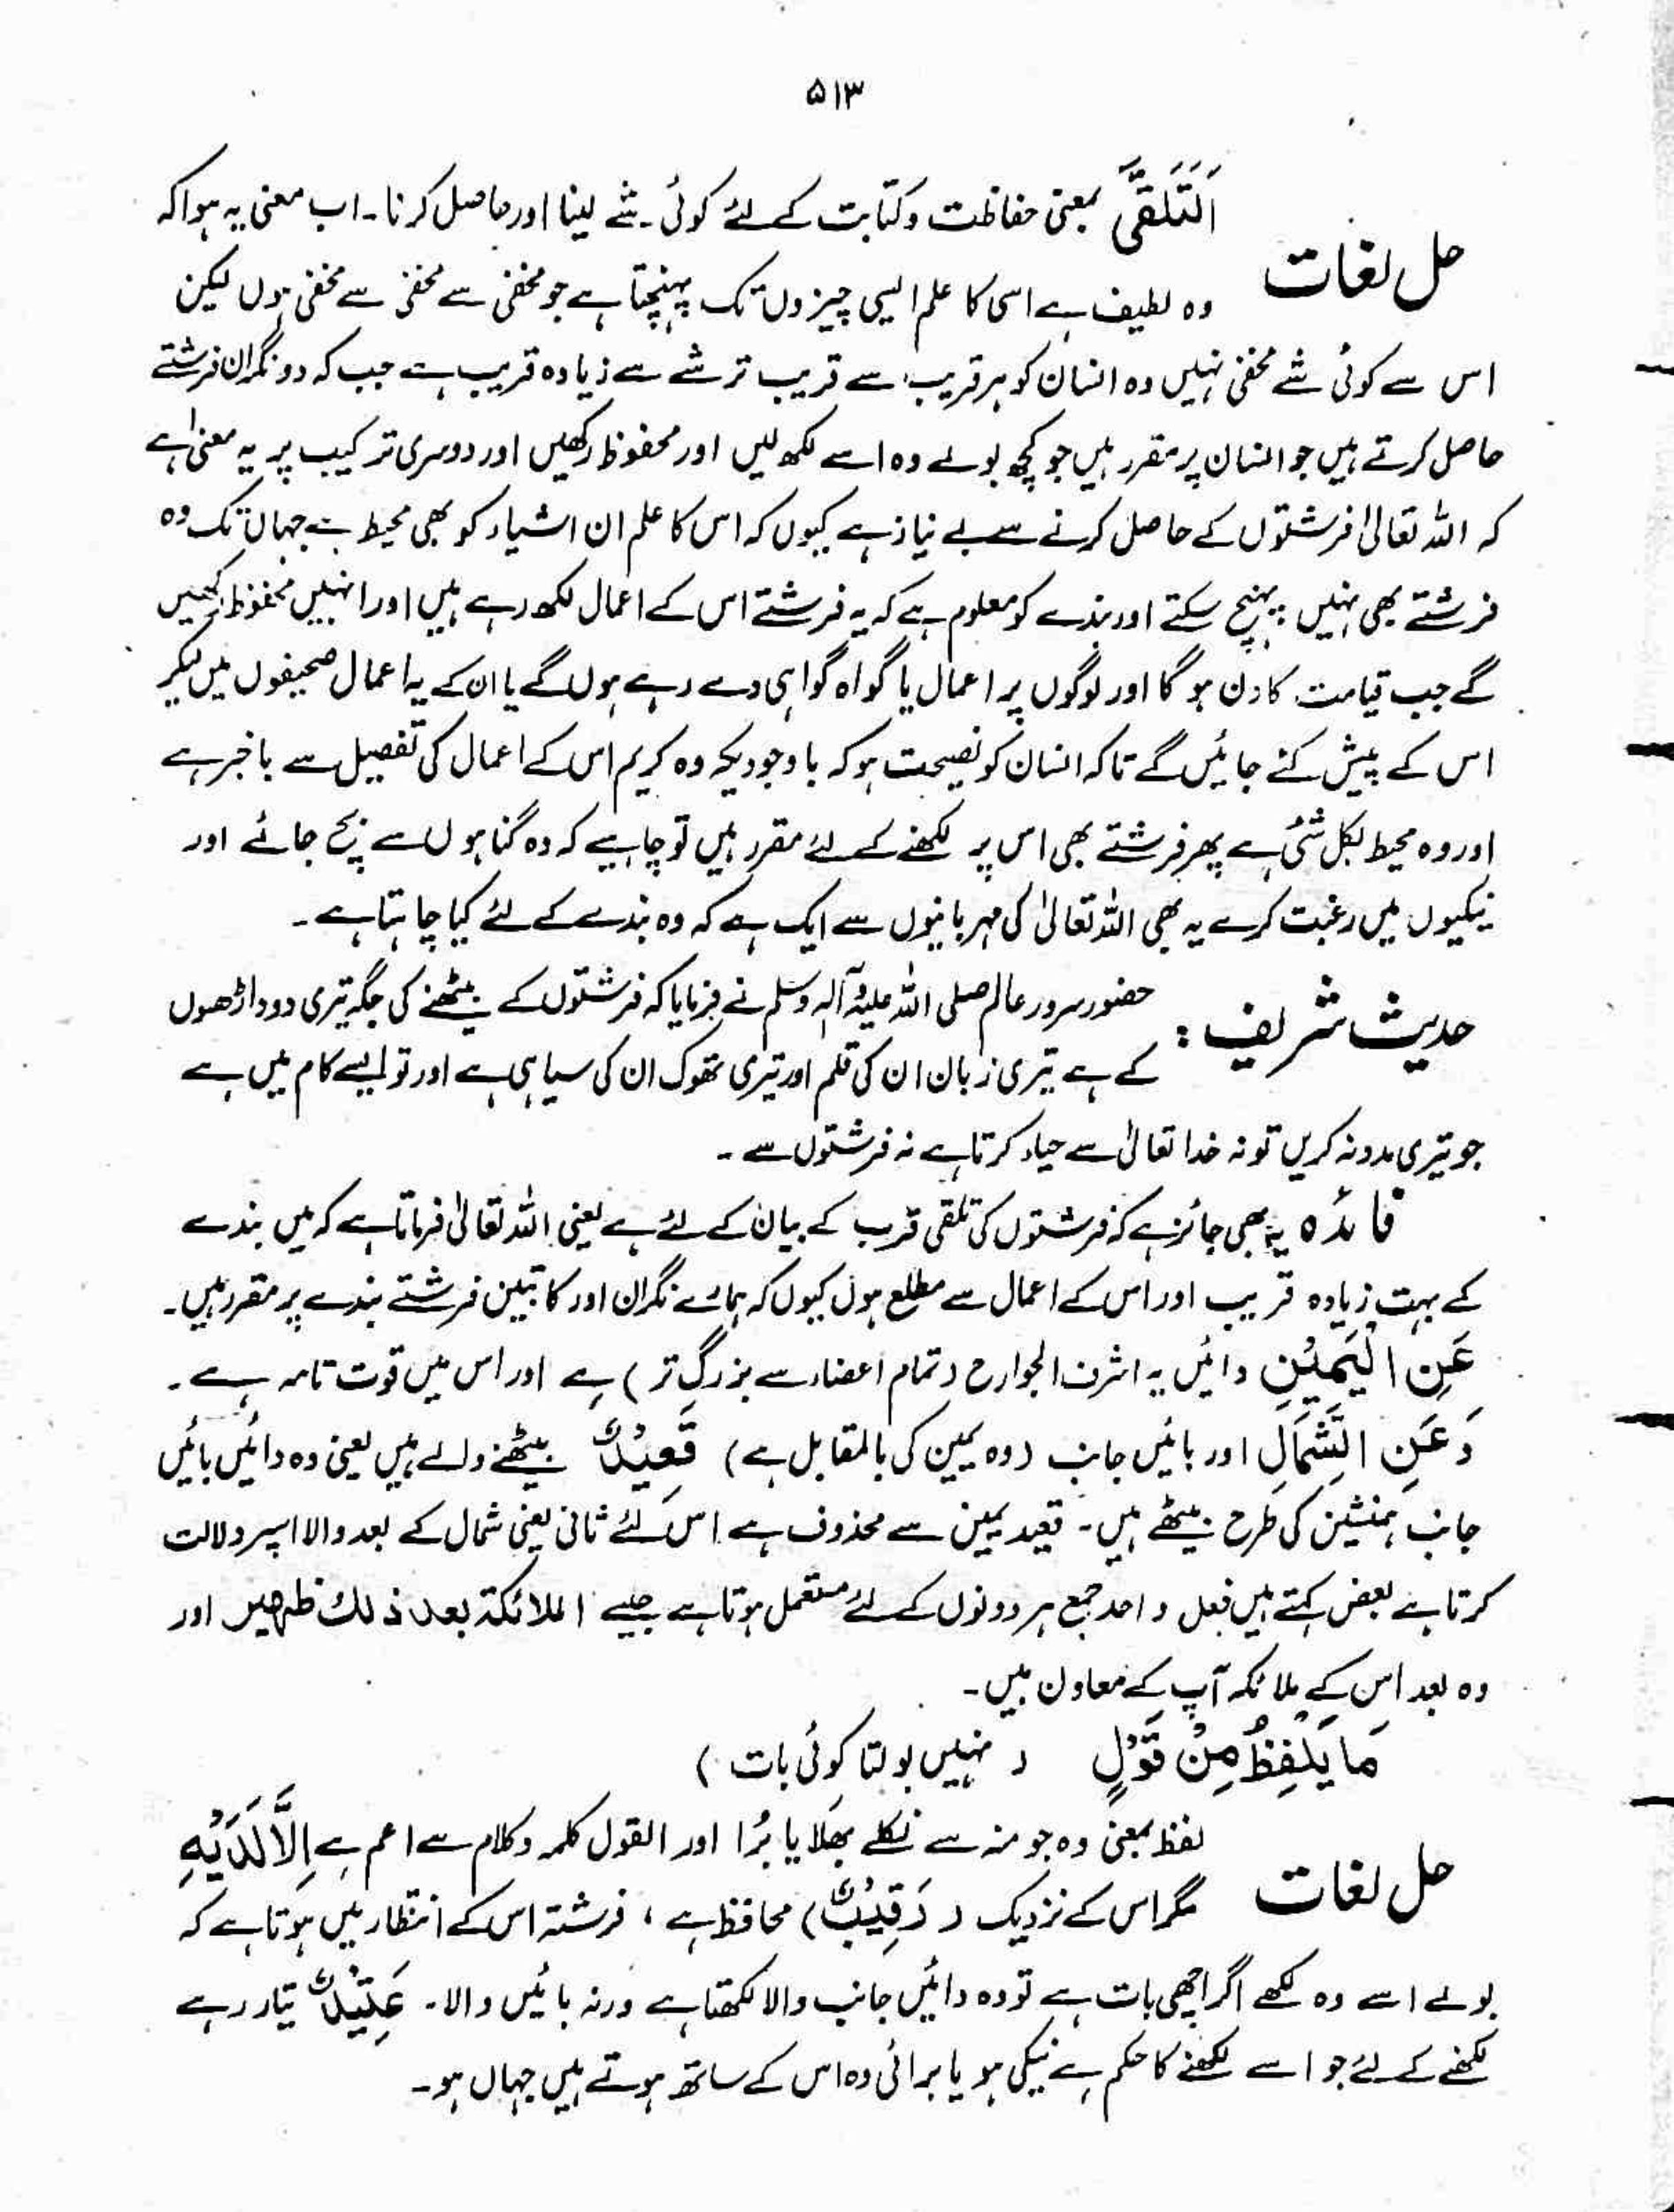 ۵۱۳
اَلتَّلَقِّی بمعنی حفاظت وکتابت کے لئے کوئی شے لینا اور حاصل کرنا۔ اب معنی یہ ہوا کہ
حل لغات
وہ لطیف ہے اسی کا علم ایسی چیزوں تک پہنچتا ہے جو مخفی سے مخفی سے مخفی ہوں لیکن
اس سے کوئی شے مخفی نہیں وہ انسان کو ہر قریب سے قریب تر شے سے زیادہ قریب ہے جب کہ دو نگران فرشتے
حاصل کرتے ہیں جو انسان پر مقرر ہیں جو کچھ بولے وہ اسے لکھ لیں اور محفوظ رکھیں اور دوسری ترکیب پر یہ معنی ہے
کہ اللہ تعالیٰ فرشتوں کے حاصل کرنے سے بے نیاز ہے کیوں کہ اس کا علم ان اشیاء کو بھی محیط ہے جہاں تک وہ
فرشتے بھی نہیں پہنچ سکتے اور بندے کو معلوم ہے کہ یہ فرشتے اس کے اعمال لکھ رہے ہیں اور انہیں محفوظ رکھیں
گے جب قیامت کا دن ہو گا اور لوگوں پر اعمال یا گواہ گواہی دے رہے ہوں گے یا ان کے یہ اعمال صحیفوں میں لیکر
اس کے پیش کئے جائیں گے تاکہ انسان کو نصیحت ہو کہ باوجودیکہ وہ کریم اس کے اعمال کی تفصیل سے باخبر ہے
اور وہ محیط لکل شئ ہے پھر فرشتے بھی اس پر لکھنے کے لئے مقرر ہیں تو چاہیے کہ وہ گناہوں سے بچ جائے اور
نیکیوں میں رغبت کرے یہ بھی اللہ تعالیٰ کی مہربانیوں سے ایک ہے کہ وہ بندے کے لئے کیا چاہتا ہے۔
حدیث شریف :
حضور سرور عالم صلی اللہ علیہ وآلہ وسلم نے فرمایا کہ فرشتوں کے بیٹھنے کی جگہ تیری دو داڑھوں
کے ہے تیری زبان ان کی قلم اور تیری تھوک ان کی سیاہی ہے اور تو ایسے کام میں ہے
جو تیری مدد نہ کریں تو نہ خدا تعالیٰ سے حیاء کرتا ہے نہ فرشتوں سے۔
فائدہ یہ بھی جائز ہے کہ فرشتوں کی تلقی قرب کے بیان کے لئے ہے یعنی اللہ تعالیٰ فرماتا ہے کہ میں بندے
کے بہت زیادہ قریب اور اس کے اعمال سے مطلع ہوں کیوں کہ ہمارے نگران اور کاتبین فرشتے بندے پر مقرر ہیں۔
عَنِ الْیَمِیْنِ دائیں یہ اشرف الجوارح (تمام اعضاء سے بزرگ تر) ہے اور اس میں قوت تامہ ہے۔
وَعَنِ الشِّمَالِ اور بائیں جانب (وہ یمین کی بالمقابل ہے) قَعِیْدٌ بیٹھنے والے ہیں یعنی وہ دائیں بائیں
جانب ہمنشین کی طرح بیٹھے ہیں۔ قعید یمین سے محذوف ہے اس لئے ثانی یعنی شمال کے بعد والا اسپر دلالت
کرتا ہے بعض کہتے ہیں فعل واحد جمع ہر دونوں کے لئے مستعمل ہوتا ہے جیسے الملائکة بعد ذلك ظهیر اور
وہ بعد اس کے ملائکہ آپ کے معاون ہیں۔
مَا یَلْفِظُ مِنْ قَوْلٍ ( نہیں بولتا کوئی بات )
لفظ بمعنی وہ جو منہ سے نکلے بھلا یا بُرا اور القول کلمہ وکلام سے اعم ہے اِلَّا لَدَیْهِ
حل لغات
مگر اس کے نزدیک ( رَقِیْبٌ ) محافظ ہے ، فرشتہ اس کے انتظار میں ہوتا ہے کہ
بولے اسے وہ لکھے اگر اچھی بات ہے تو وہ دائیں جانب والا لکھتا ہے ورنہ بائیں والا۔ عَتِیْدٌ تیار رہے
لکھنے کے لئے جو اسے لکھنے کا حکم ہے نیکی ہو یا برائی وہ اس کے ساتھ ہوتے ہیں جہاں ہو۔